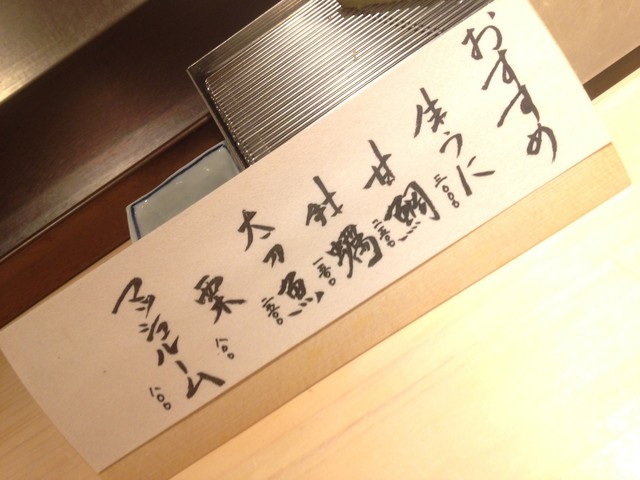 おすすめ
生うに 三〇〇〇
甘鯛 二五〇〇
太刀魚 二五〇〇
栗 八〇〇
マッシュルーム 八〇〇